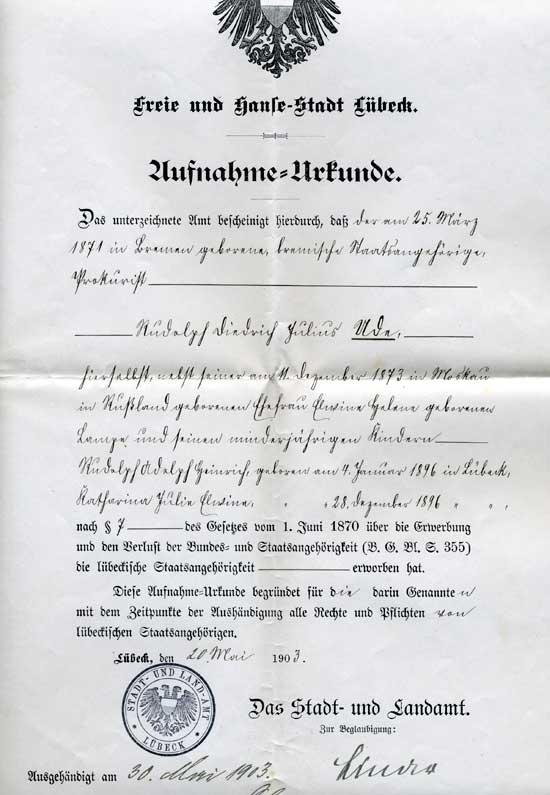 Freie und Hanse-Stadt Lübeck.
Aufnahme-Urkunde.
Das unterzeichnete Amt bescheinigt hierdurch, daß der am 25. März
1871 in Bremen geborene, bremische Staatsangehörige,
Prokurist
Rudolph Diedrich Julius Ude,
hierselbst, nebst seiner am 11. Dezember 1873 in Moskau
in Rußland geborenen Ehefrau Elwine Helene geborenen
Lampe und seinen minderjährigen Kindern
Rudolph Adolph Heinrich, geboren am 4. Januar 1896 in Lübeck,
Katharina Julie Elwine, " " 28. Dezember 1896 " "
nach § 7 des Gesetzes vom 1. Juni 1870 über die Erwerbung
und den Verlust der Bundes- und Staatsangehörigkeit (B. G. Bl. S. 355)
die lübeckische Staatsangehörigkeit erworben hat.
Diese Aufnahme-Urkunde begründet für die darin Genannten
mit dem Zeitpunkte der Aushändigung alle Rechte und Pflichten von
lübeckischen Staatsangehörigen.
Lübeck, den 20. Mai 1903.
STADT- UND LAND-AMT
LÜBECK
Das Stadt- und Landamt.
Zur Beglaubigung:
Ausgehändigt am 30. Mai 1903.